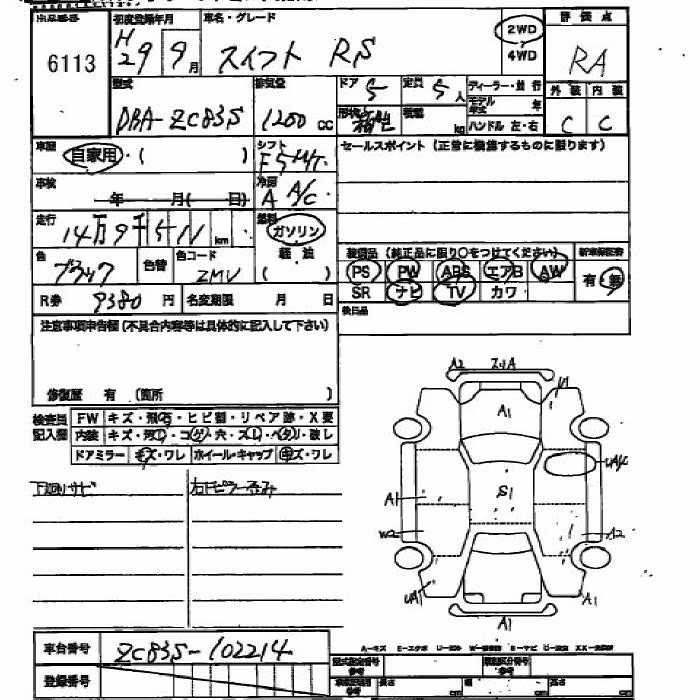 出品番号 初度登録年月 車名・グレード 評価点
6113 H29 9月 スイフト RS 2WD 4WD RA
型式 排気量 ドア 5 定員 5人 ディーラー・並行 外装 内装
DBA-ZC83S 1200cc 形状 箱型 積載 kg モデル年式 年 ハンドル 左・右 C C
車歴 自家用・( ) シフト F5 M/T セールスポイント(正常に機能するものに限ります)
車検 年 月( 日) 冷房 A A/C
走行 14万9千 km 燃料 ガソリン 軽油 ( )
色 ブラック 色替 色コード ZMV 装備品(純正品に限り○をつけてください) 新車保証書
PS PW ABS エアB AW 有・無
R券 9380円 名変期限 月 日 SR ナビ TV カワ
後日品
注意事項申告欄(不具合内容等は具体的に記入して下さい)
修復歴 有 (箇所 )
検査員記入欄 FW キズ・飛石・ヒビ割・リペア跡・X要
内装 キズ・汚レ・コゲ・穴・スレ・ベタリ・破レ
ドアミラー キズ・ワレ ホイール・キャップ キズ・ワレ
下廻りサビ 右Bピラー歪み
A2 A
A1
A1 S1
W2 A2
A1 A1 A1
車台番号 ZC83S-102214
登録番号
A-キズ
型式指定番号 類別区分番号
長さ cm 幅 cm 高さ cm